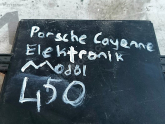 Porsche Cayenne
Elektronik
Modol
450